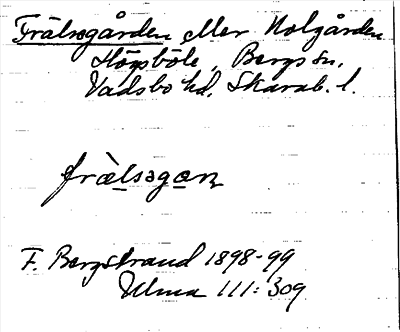 Frälsegården eller Nolgården
Högsböle, Bergs sn,
Vadsbo hd. Skarab. l.
frälsəgan
F. Bergstrand 1898-99
Ulma 111:309